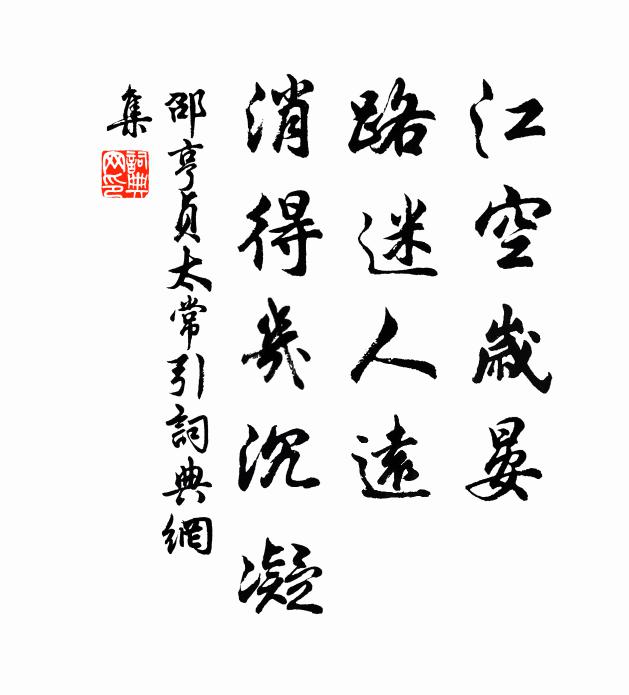 江空歲晏
路迷人遠
消得幾沉凝
邵亨貞太常引詞典網
集
詞典
网印